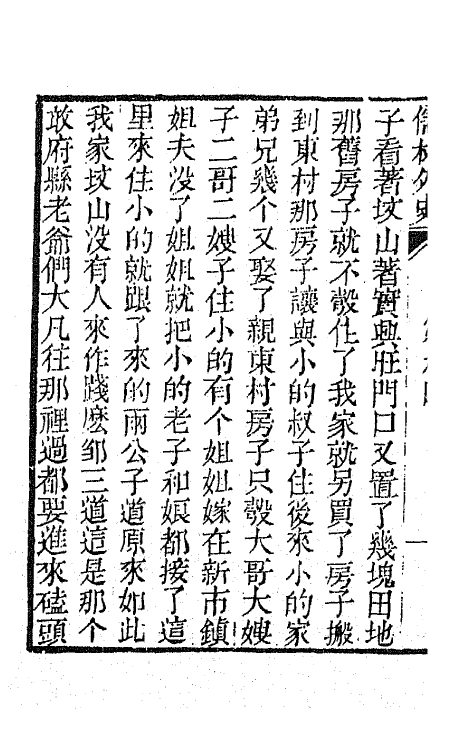 儒林外史
子看著坟山著實興旺門口又置了幾塊田地
那舊房子就不彀住了我家就另買了房子搬
到東村那房子讓與小的叔子住後來小的家
弟兄幾个又娶了親東村房子只彀大哥大嫂
子二哥二嫂子住小的有个姐姐嫁在新市鎮
姐夫没了姐姐就把小的老子和娘都接了這
里來住小的就跟了來的兩公子道原來如此
我家坟山没有人來作踐麽邹三道這是那个
敢府縣老爺們大凡往那裡過都要進來磕頭